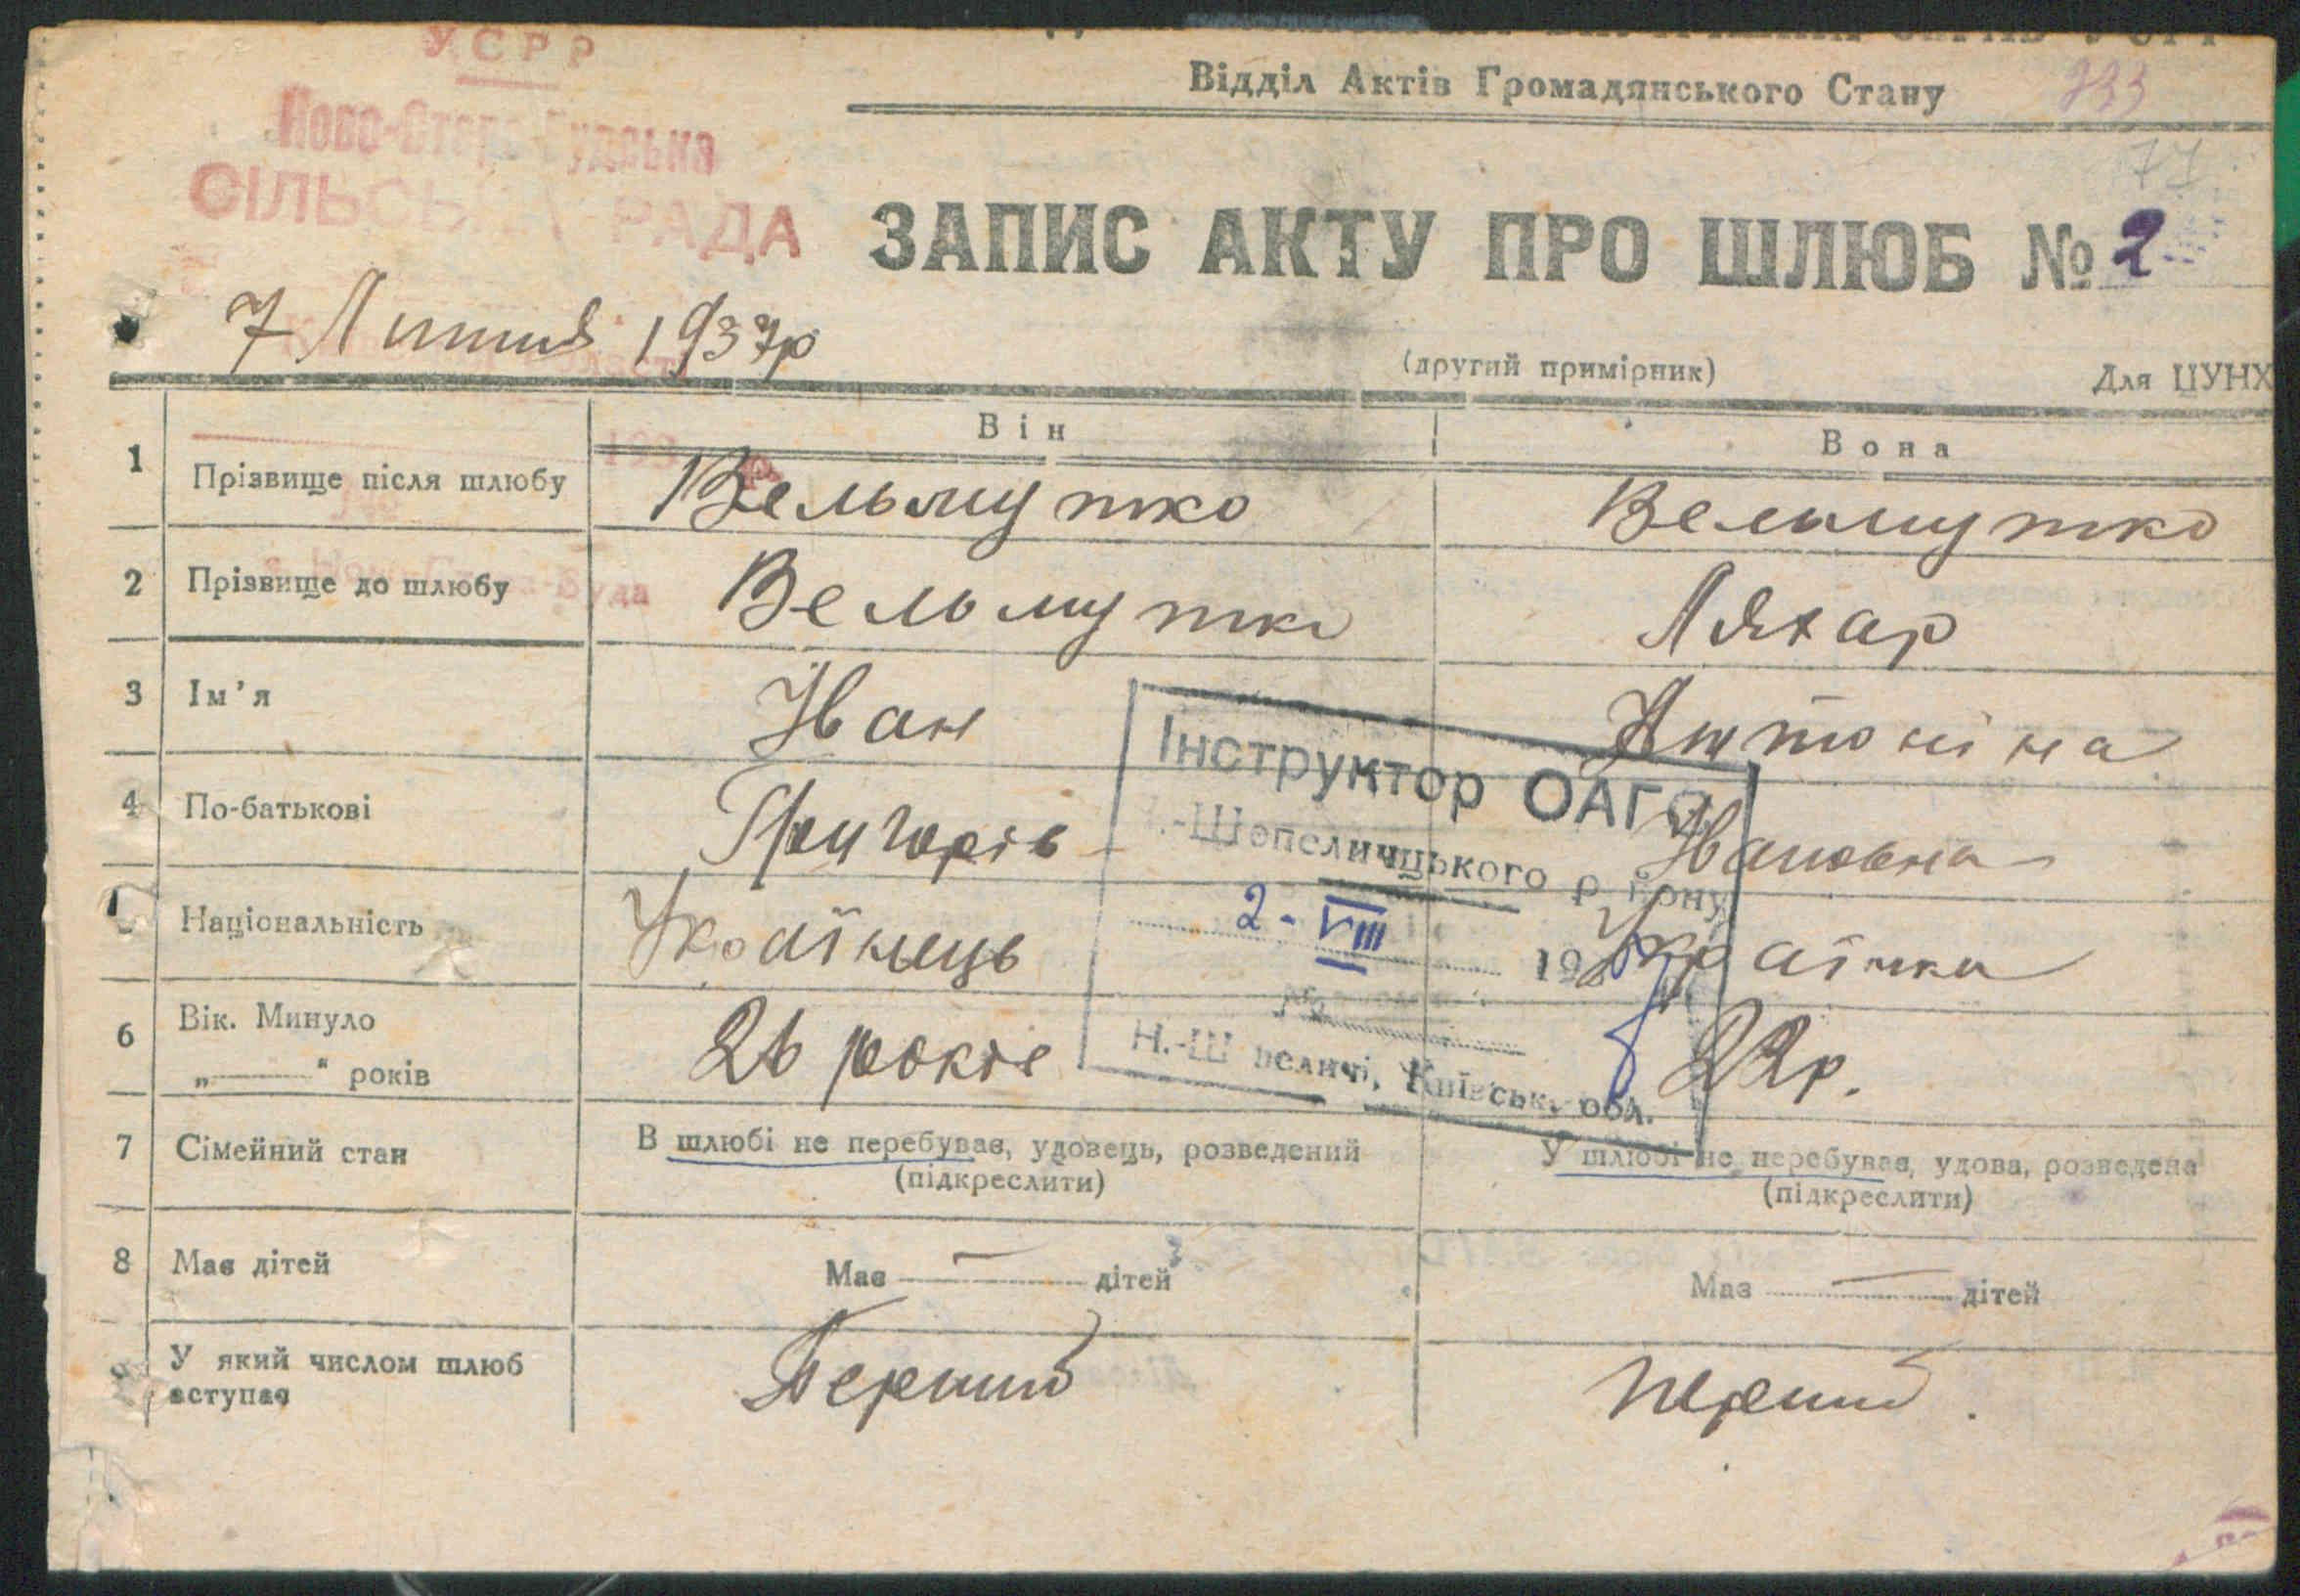 УСРР
Відділ Актів Громадянського Стану
Ново-Старо-Будська
СІЛЬСЬКА РАДА
ЗАПИС АКТУ ПРО ШЛЮБ № 2
7 Липня 1937р
(другий примірник)
Для ЦУНХ
Він
Вона
1 Прізвище після шлюбу Вельмутко Вельмутко
2 Прізвище до шлюбу Вельмутко Ляхар
3 Ім’я Іван Антоніна
Інструктор ОАГС
4 По-батькові Григорів Івановна
Н.-Шепеличцького району
Національність Українець Українка
2-VIII 19
6 Вік. Минуло
„ “ років 26 років 22р.
Н.-Шепеличі, Київськ. обл.
7 Сімейний стан В шлюбі не перебував, удовець, розведений У шлюбі не перебувае, удова, розведена
(підкреслити) (підкреслити)
8 Має дітей Має — дітей Має — дітей
У який числом шлюб
вступає Перший Перший.